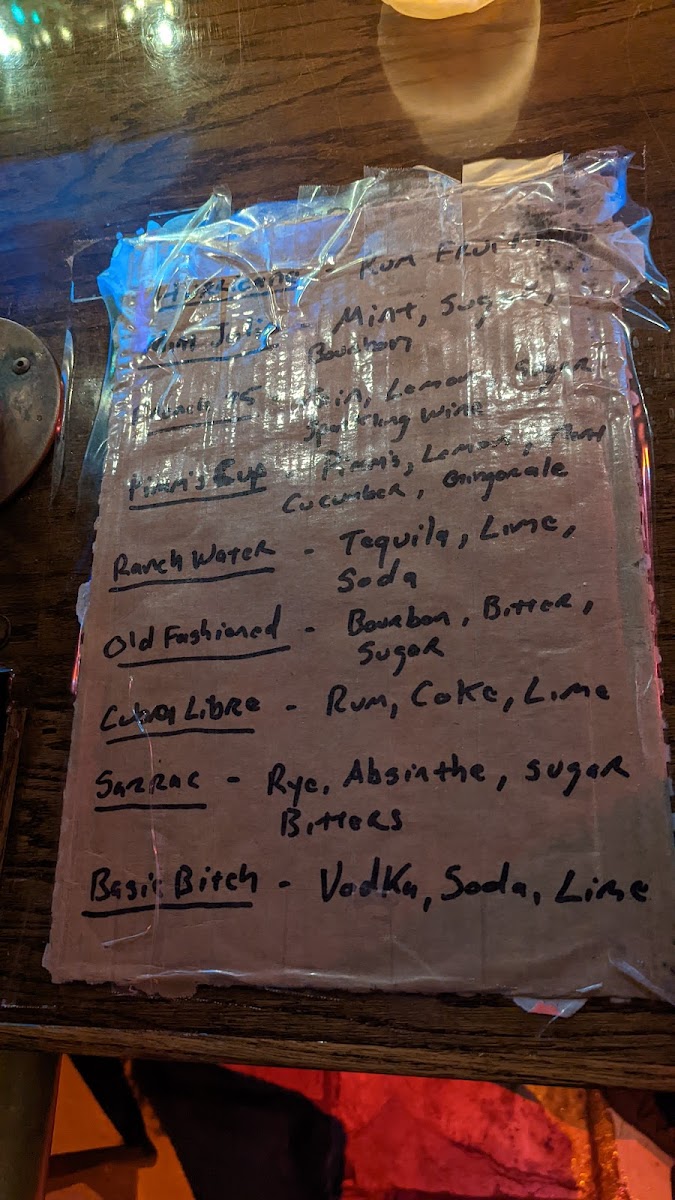 Hurricane - Rum Fruit
Mint Julip - Mint, Sugar,
Bourbon
French 75 - Gin, Lemon, Sugar
Sparkling Wine
Pimm's Cup - Pimm's, Lemon, Mint
Cucumber, Gingerale
Ranch Water - Tequila, Lime,
Soda
Old Fashioned - Bourbon, Bitter,
Sugar
Cuba Libre - Rum, Coke, Lime
Sazzrac - Rye, Absinthe, sugar
Bitters
Basic Bitch - Vodka, Soda, Lime